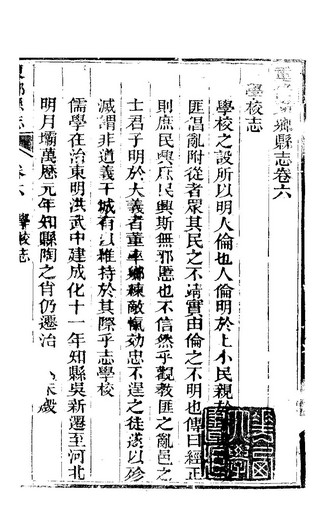 重修東鄉縣志卷六
學校志
學校之設所以明人倫也人倫明於上小民親於
匪倡亂附從者眾其民之不靖實由倫之不明也傳曰經正
則庶民興庶民興斯無邪慝也不信然乎觀教匪之亂邑之
士君子明於大義者董率鄉練敵愾効忠不逞之徒遂以殄
滅謂非道義干城有以維持於其際乎志學校
儒學在治東明洪武中建成化十一年知縣吳新遷至河北
明月壩萬歷元年知縣陶之肖仍遷治
東鄉縣志
卷六 學校志